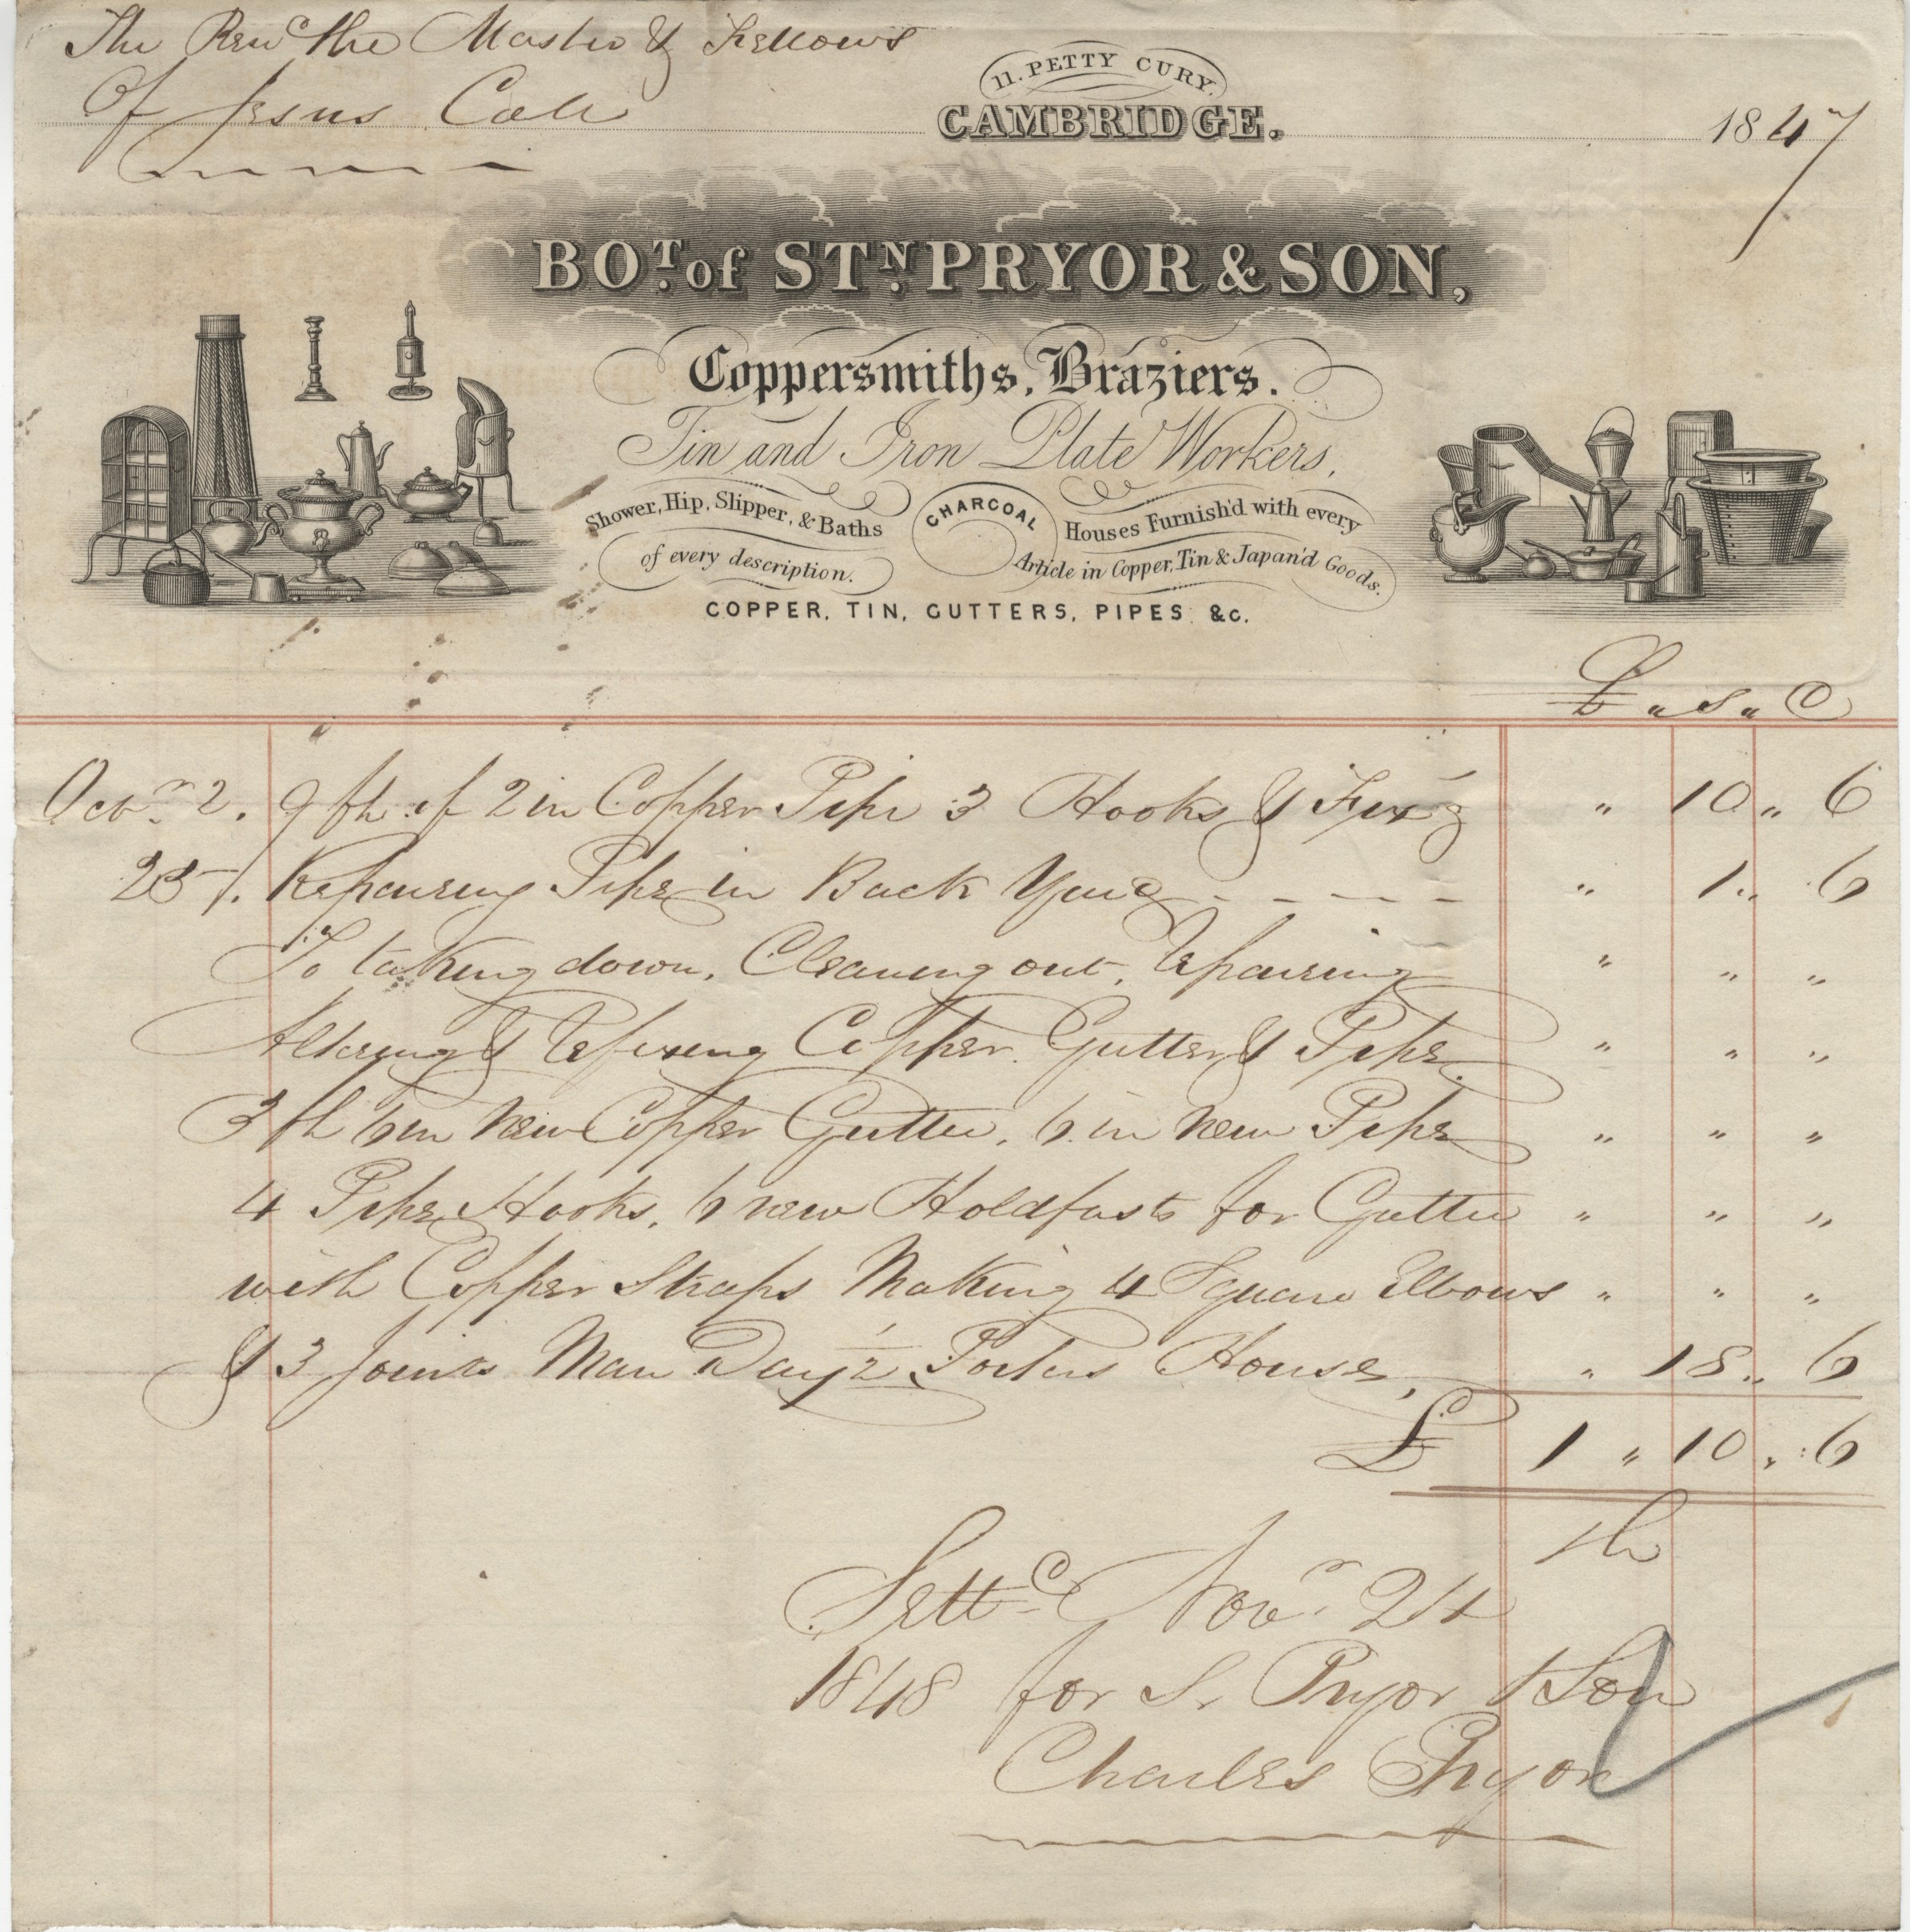 The Revd. the Master & Fellows
Of Jesus Coll
11. PETTY CURY.
CAMBRIDGE.
1847
BOT. of STN. PRYOR & SON,
Coppersmiths, Braziers.
Tin and Iron Plate Workers,
Shower, Hip, Slipper, & Baths
of every description.
CHARCOAL
Houses Furnish'd with every
Article in Copper, Tin & Japan'd Goods.
COPPER, TIN, GUTTERS, PIPES &c.
£ " s " d
Octr. 2. 9 ft of 2 in Copper Pipe 3 Hooks & Fixg " 10 " 6
Repairing Pipe in Back Yard - - - - " 1 " 6
To taking down, Cleaning out, Repairing " " "
Altering & Refixing Copper Gutter & Pipe " " "
3 ft 6 in New Copper Gutter, 6 in new Pipe " " "
4 Pipe Hooks, 6 new Holdfasts for Gutter " " "
with Copper Straps Making 4 Square Elbows " " "
& 3 Joints Man Day ½ Porters House, " 18 " 6
£ 1 " 10 " 6
Settd Novr 24
1848 for S. Pryor & Son
Charles Pryor